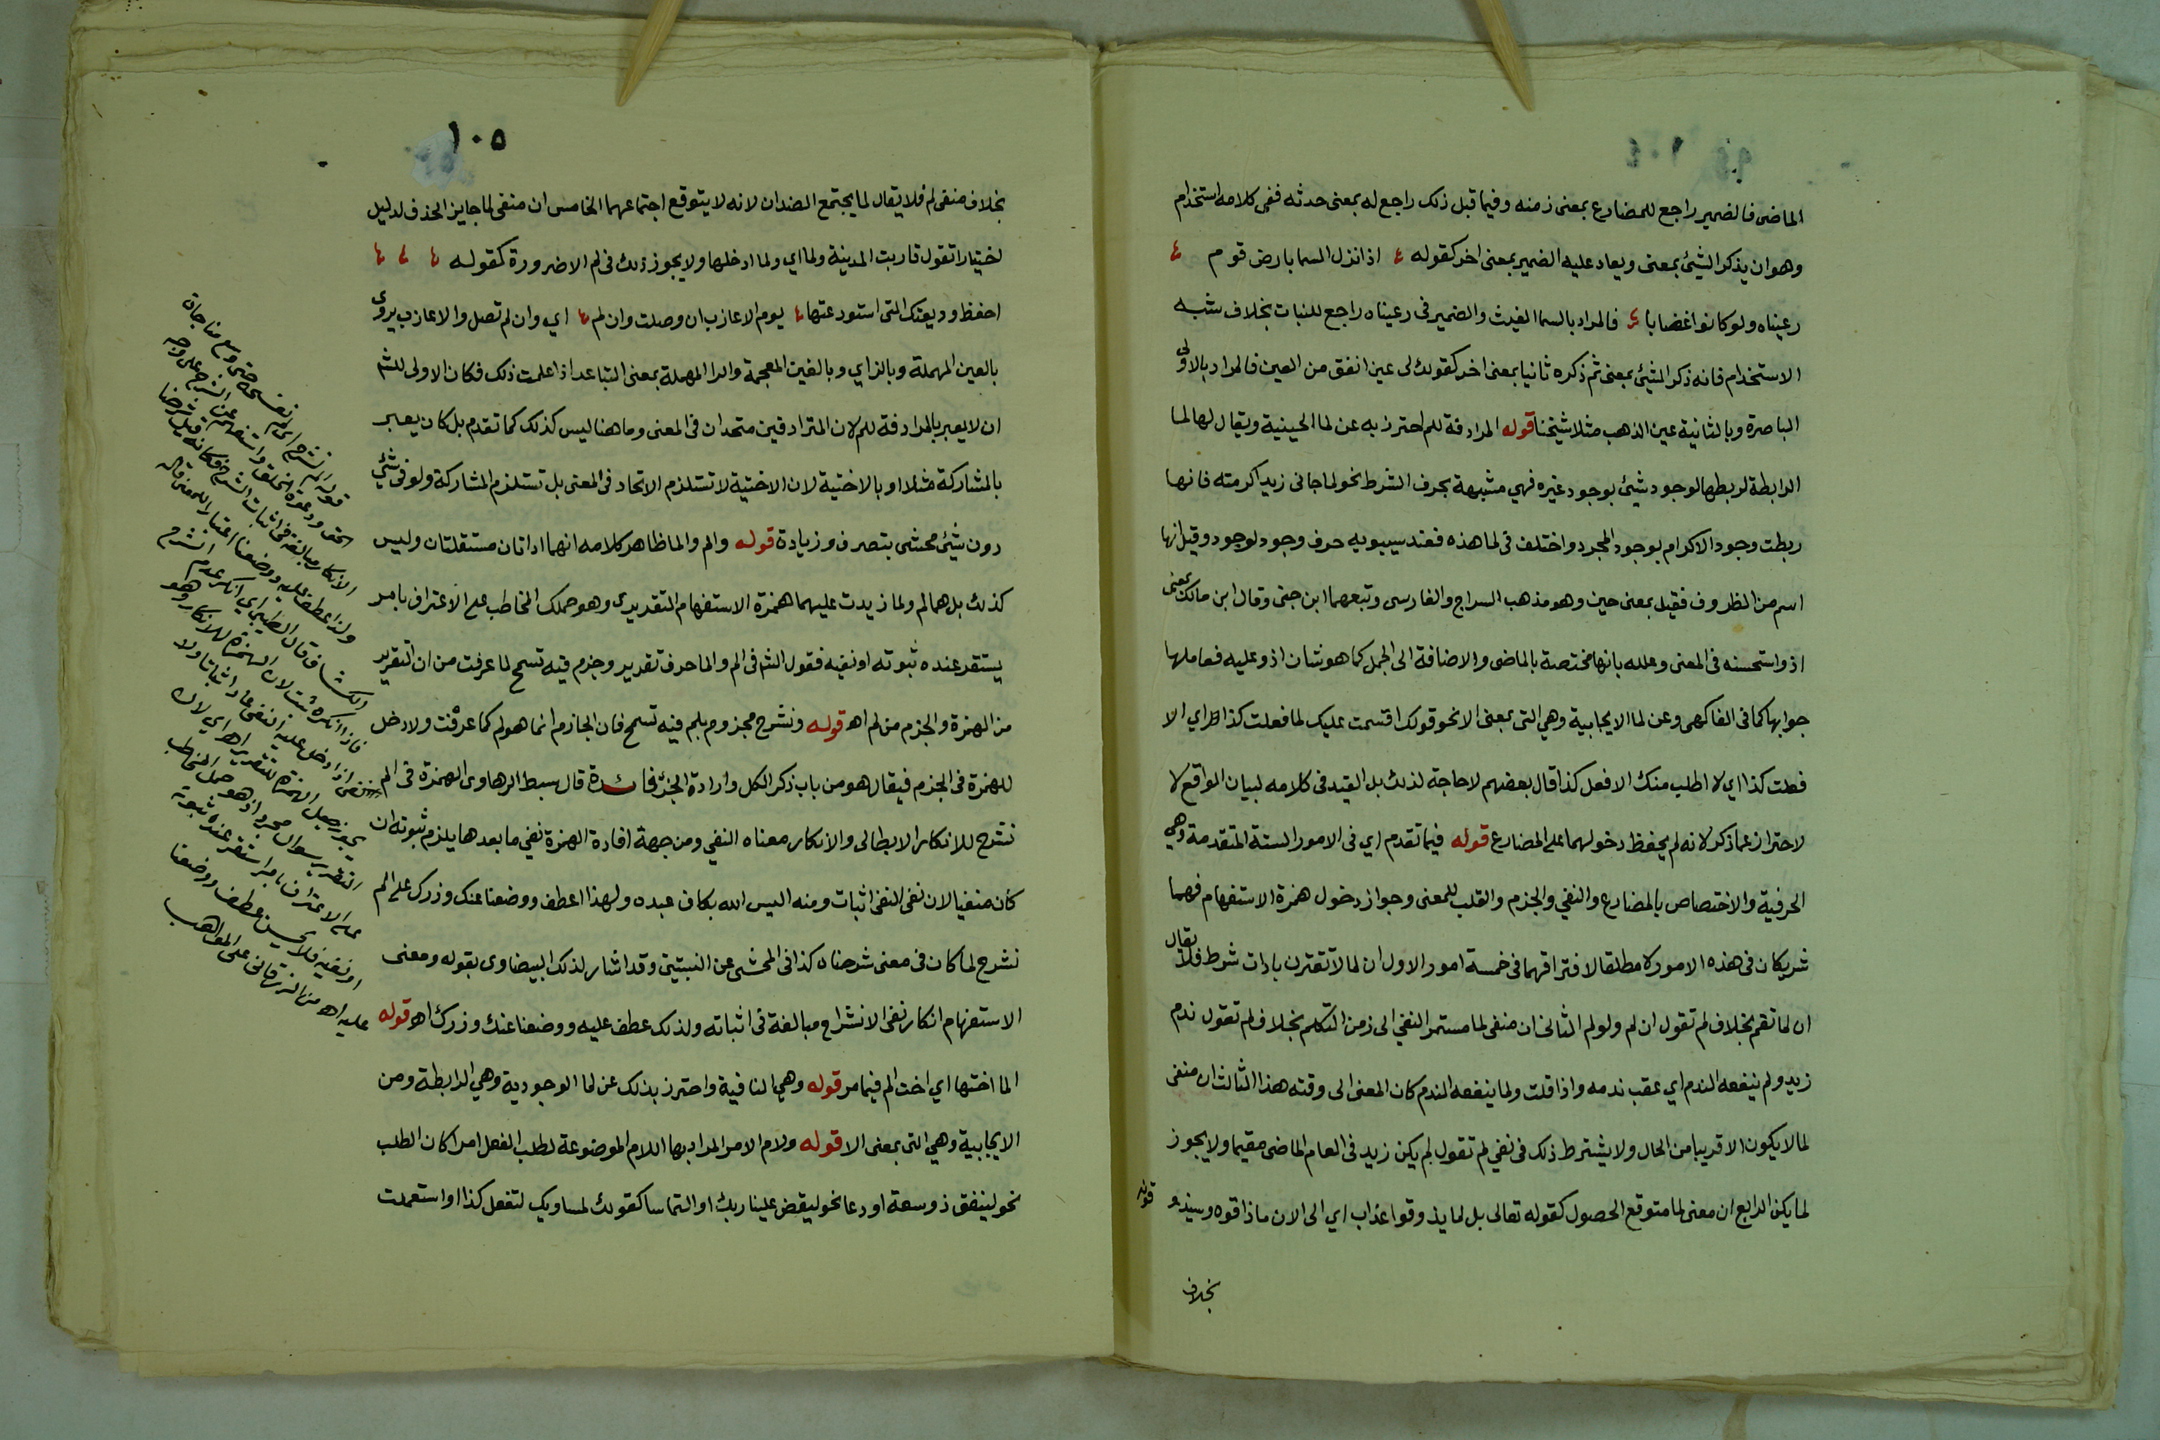 الماضى فالضمير راجع للمضارع بمعنى زمنه وفيما قبل ذلك راجع له بمعنى حدثه ففى كلامه استخدام
وهو ان يذكر الشيئ بمعنى ويعاد عليه الضمير بمعنى اخر كقوله اذا نزل السما بارض قوم
رعيناه ولو كانوا غضابا فالمراد بالسما الغيث والضمير فى رعيناه راجع للنبات بخلاف شبه
الاستخدام فانه ذكر الشيئ بمعنى ثم ذكره ثانيا بمعنى اخر كقولك لى عين انفق من العين فالمراد بالاولى
الباصرة وبالثانية عين الذهب مثلا شيخنا قوله المرادفة للم احترز به عن لما الحينية ويقال لها لما
الرابطة لربطها لوجود شيئ بوجود غيره فهي مشبهة بحرف الشرط نحو لما جانى زيد اكرمته فانها
ربطت وجود الاكرام بوجود المجي واختلف فى لما هذه فعند سيبويه حرف وجود لوجود وقيل انها
اسم من الظروف فقيل بمعنى حين وهو مذهب السراج والفارسى وتبعهما ابن جنى وقال ابن مالك بمعنى
اذ واستحسنه فى المغنى وعلله بانها مختصة بالماضى والاضافة الى الجمل كما هو شان اذ وعليه فعاملها
جوابها كما فى الفاكهى وعن لما الايجابية وهي التى بمعنى الا نحو قولك اقسمت عليك لما فعلت كذا اي الا
فعلت كذا اي لا اطلب منك الا فعل كذا قال بعضهم لا حاجة لذلك بل القيد فى كلامه لبيان الواقع لا
لاحتراز عما ذكر لانه لم يحفظ دخولهما على المضارع قوله فيما تقدم اي فى الامور الستة المتقدمة وهي
الحرفية والاختصاص بالمضارع والنفي والجزم والقلب للمعنى وجواز دخول همزة الاستفهام فهما
شريكان فى هذه الامور لا مطلقا لافتراقهما فى خمسة امور الاول ان لما لا تقترن بادات شرط فلا يقال
ان لما تقم بخلاف لم تقول ان لم ولو لم الثانى ان منفى لما مستمر النفي الى زمن التكلم بخلاف لم تقول ندم
زيد ولم ينفعه الندم اي عقب ندمه واذا قلت ولما ينفعه الندم كان المعنى الى وقته هذا الثالث ان منفى
لما لا يكون الا قريبا من الحال ولا يشترط ذلك فى نفي لم تقول لم يكن زيد فى العام الماضى مقيما ولا يجوز
لما يكن الرابع ان معنى لما متوقع الحصول كقوله تعالى بل لما يذوقوا عذاب اي الى الان ماذاقوه وسيذو
قونه
بخلاف
١٠٥
بخلاف منفى لم فلا يقال لما يجتمع الضدان لانه لا يتوقع اجتماعهما الخامس ان منفى لما جايز الحذف لدليل
اختيارا تقول قاربت المدينة ولما اي ولما ادخلها ولا يجوز ذلك فى لم الا ضرورة كقوله
احفظ وديعتك التى استودعتها يوم الاعازب ان وصلت وان لم اي وان لم تصل والاعازب يروى
بالعين المهملة وبالزاي وبالغين المعجمة والرا المهملة بمعنى التباعد اذا علمت ذلك فكان الاولى للشم
ان لا يعبر بالمرادفة للم لان المترادفين متحدان فى المعنى وما هنا ليس كذلك كما تقدم بل كان يعبر
بالمشاركة مثلا او بالاختية لان الاختية لا تستلزم الاتحاد فى المعنى بل تستلزم المشاركة ولو فى شيئ
دون شيئ محشى بتصرف وزيادة قوله والم والما ظاهر كلامه انهما اداتان مستقلتان وليس
كذلك بل هما لم ولما زيدت عليهما همزة الاستفهام التقديرى وهو حملك المخاطب على الاعتراف بامر
يستقر عنده ثبوته او نفيه فقول الشم فى الم والما حرف تقدير وجزم فيه تسمح لما عرفت من ان التقرير
من الهمزة والجزم من لم اهـ قوله ونشرح مجزوم بلم فيه تسمح فان الجازم انما هو لم كما عرفت ولا دخل
للهمزة فى الجزم فيقال هو من باب ذكر الكل وارادة الجزء فائدة قال سبط الرهاوى الهمزة فى الم
نشرح للانكار الابطالى والانكار معناه النفي ومن جهة افادة الهمزة نفي ما بعدها يلزم ثبوته ان
كان منفيا لان نفى النفى اثبات ومنه اليس الله بكاف عبده ولهذا اعطف ووضعنا عنك وزرك على الم
نشرح لما كان فى معنى شرحناه كذا فى المحشى عن النبتيتى وقد اشار لذلك البيضاوى بقوله ومعنى
الاستفهام انكار نفى الانشراح مبالغة فى اثباته ولذلك عطف عليه ووضعنا عنك وزرك اهـ قوله
الما اختها اي اخت الم فيما مر قوله وهي النافية واحترز بذلك عن لما الوجودية وهي الرابطة ومن
الايجابية وهي التى بمعنى الا قوله ولام الامر المراد بها اللام الموضوعة لطلب الفعل امرا كان الطلب
نحو لينفق ذو سعة او دعا نحو ليقض علينا ربك او التماسا كقولك لمساويك لتفعل كذا او استعملت
قوله الم نشرح اي الم نفسحه حتى وسع مناجاة
الحق ودعوة الخلق واستفهم عن الشرح على وجه
الانكار مبالغة فى اثبات الشرح فكانه قيل شرحنا
ولذا عطف عليه ووضعنا اعتبارا للمعنى قاله
الكشاف قال الطيبي اي انكر عدم الشرح
فاذا انكره ثبت لان الهمزة للانكار وهو
نفى اذا دخل على النفى عاد اثباتا ولا
يجوز جعل الهمزة للتقرير اهـ اي لان
التقرير سوال مجرد اذ هو حمل المخاطب
على الاعتراف بامر استقر عنده ثبوته
او نفيه فلا يحسن عطف ووضعنا
عليه اهـ من الزرقانى على المواهب